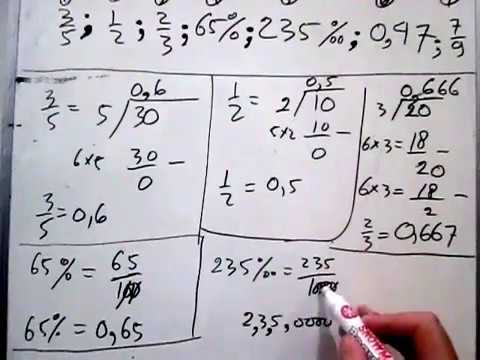 3/5 ; 1/2 ; 2/3 ; 65% ; 235‰ ; 0,47 ; 7/9
3/5 = 5 / 30
0,6
6x5 30 −
0
3/5 = 0,6
1/2 = 2 / 10
0,5
5x2 10 −
0
1/2 = 0,5
0,666
3 / 20
6x3 = 18 −
20
6x3 = 18 −
2
2/3 = 0,667
65% = 65/100
65% = 0,65
235‰ = 235/1000
2,3,5,0000